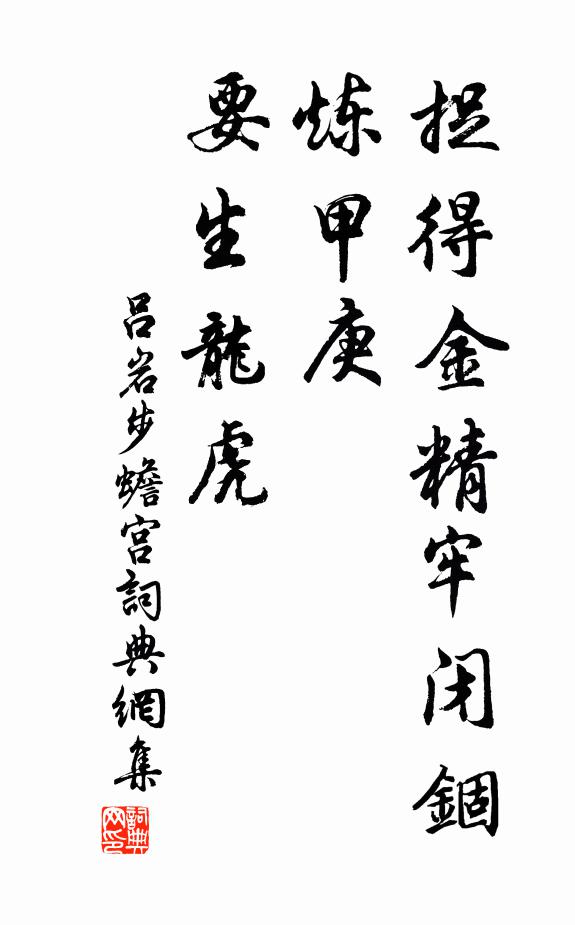 捉得金精牢闭錮
炼甲庚
要生龍虎
吕岩步蟾宫詞典網集
詞典网印